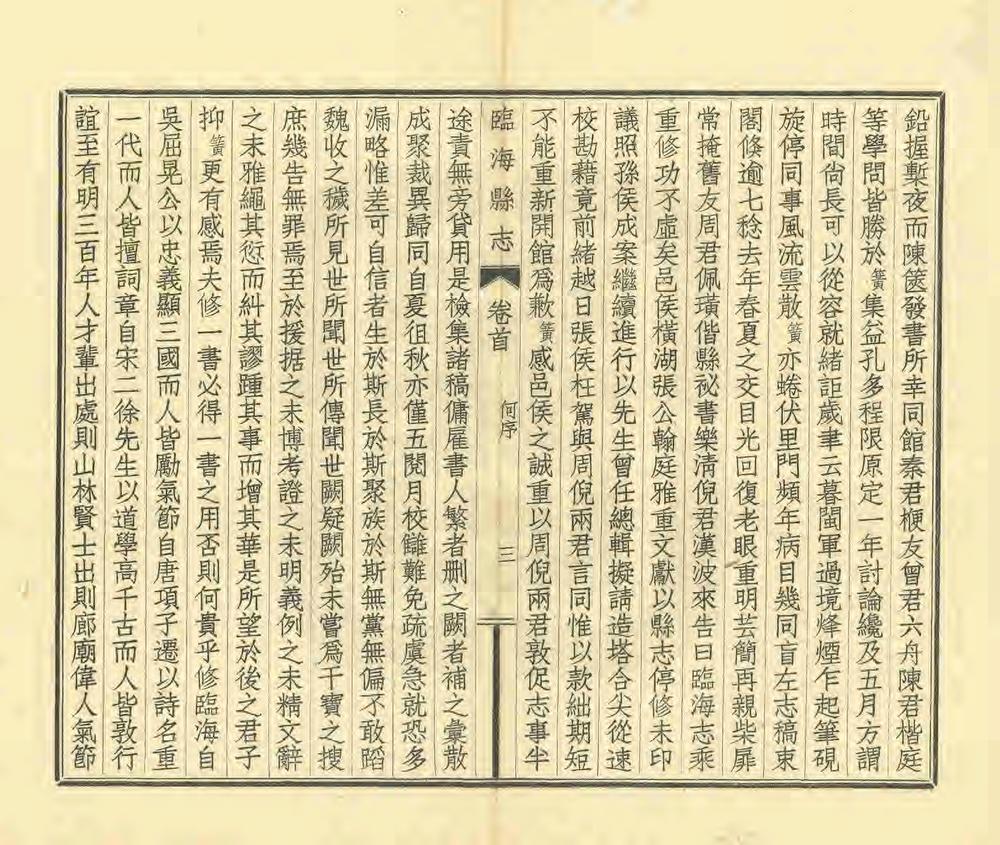 鉛握槧夜而陳篋發書所幸同館秦君楩友曾君六舟陳君楷庭
等學問皆勝於簧集益孔多程限原定一年討論纔及五月方謂
時間尙長可以從容就緖詎歲聿云暮閩軍過境烽煙乍起筆硯
旋停同事風流雲散簧亦蜷伏里門頻年病目幾同盲左志稿束
閣倐逾七稔去年春夏之交目光回復老眼重明芸簡再親柴扉
常掩舊友周君佩璜偕縣祕書樂淸倪君漢波來告曰臨海志乘
重修功不虛矣邑侯橫湖張公翰庭雅重文獻以縣志停修未印
議照孫侯成案繼續進行以先生曾任總輯擬請造塔合尖從速
校勘藉竟前緖越日張侯枉駕與周倪兩君言同惟以款絀期短
不能重新開館爲歉簧感邑侯之誠重以周倪兩君敦促志事半
臨海縣志 卷首 何序 三
途責無旁貸用是檢集諸稿傭雇書人繁者刪之闕者補之彙散
成聚裁異歸同自夏徂秋亦僅五閱月校讎難免疏虞急就恐多
漏略惟差可自信者生於斯長於斯聚族於斯無黨無偏不敢蹈
魏收之穢所見世所聞世所傳聞世闕疑闕殆未嘗爲干寶之搜
庶幾告無罪焉至於援据之未博考證之未明義例之未精文辭
之未雅繩其愆而糾其謬踵其事而增其華是所望於後之君子
抑簧更有感焉夫修一書必得一書之用否則何貴乎修臨海自
吳屈晃公以忠義顯三國而人皆勵氣節自唐項子遷以詩名重
一代而人皆擅詞章自宋二徐先生以道學高千古而人皆敦行
誼至有明三百年人才輩出處則山林賢士出則廊廟偉人氣節